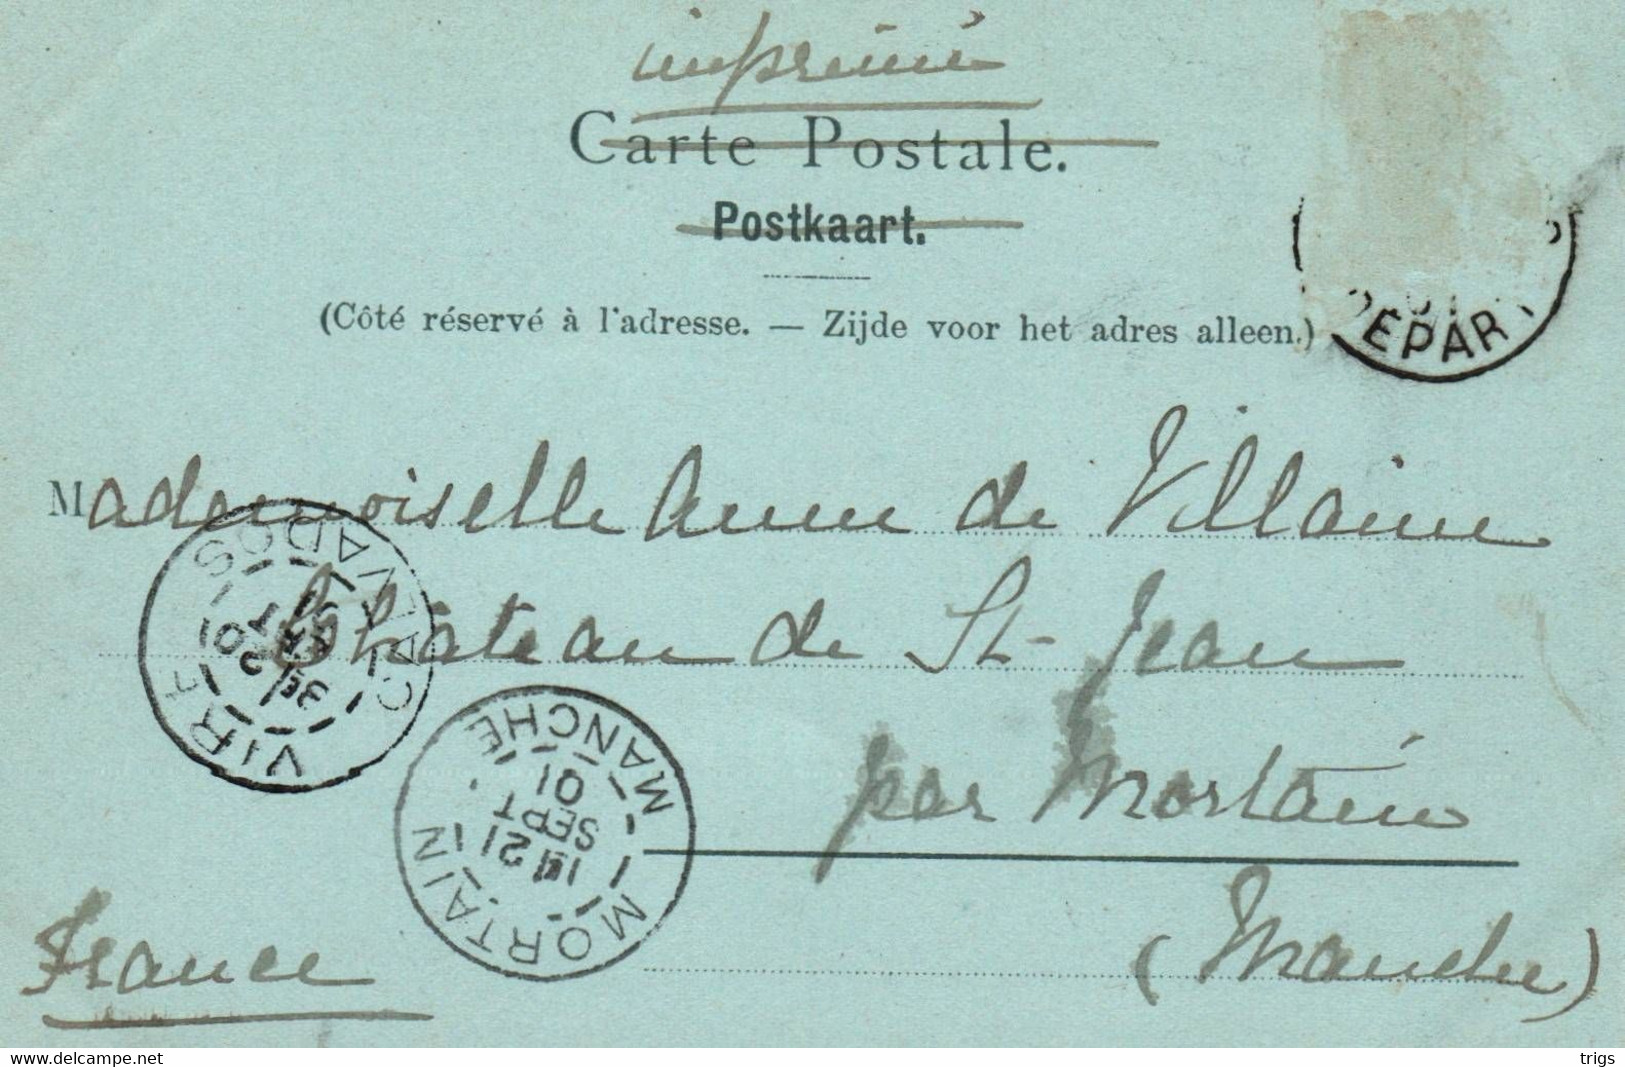 imprimé
Carte Postale.
Postkaart.
(Côté réservé à l'adresse. — Zijde voor het adres alleen.)
DEPART
01
Mademoiselle Anne de Villaine
Château de St-Jean
par Mortain
(Manche)
France
VIRE
CALVADOS
20
SEPT
01
MORTAIN
MANCHE
21
SEPT
01
delcampe.net
trigs